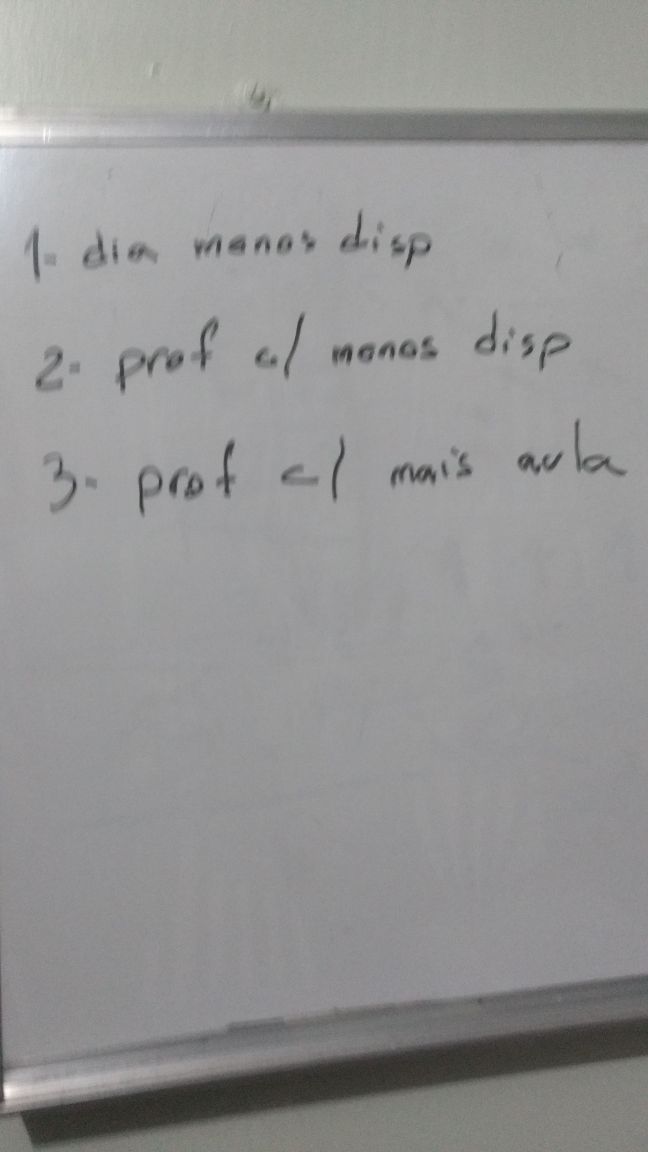 1- dia menos disp
2- prof c/ menos disp
3- prof c/ mais aula